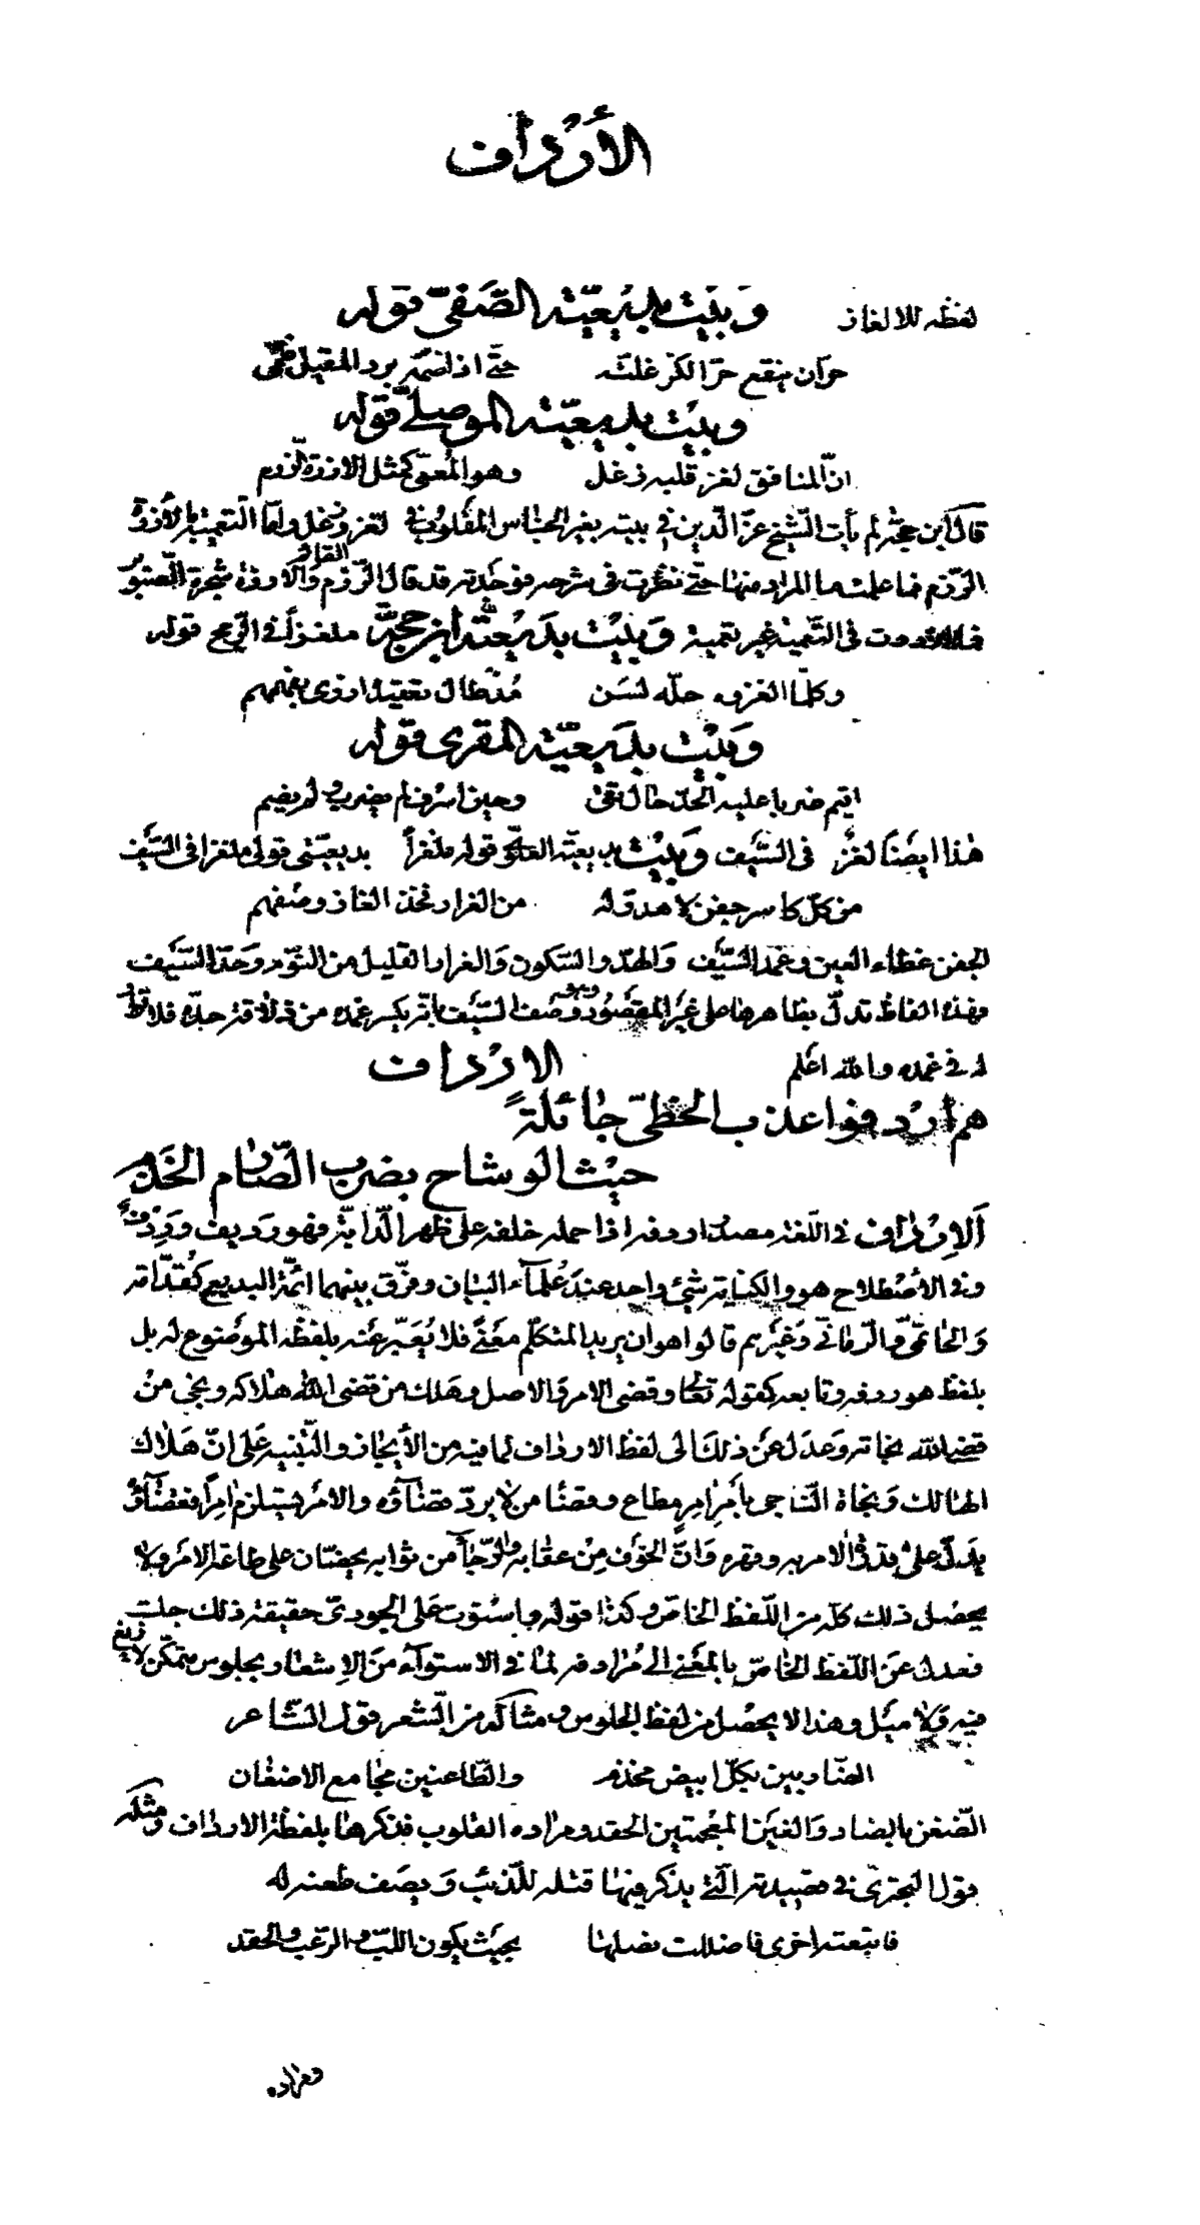 الأرداف
لفظه للالغاز وبيت بديعية الصفي قوله
حران ينقع حر الكر غلته حتى اذا ضمه برد المقيل ظمي
وبيت بديعية الموصلي قوله
ان المنافق لغز قلبه زغل وهو المعمى كمثل الارزة الرزم
قال ابن حجة لم يأت الشيخ عز الدين في بيته بغير الجناس المقلوب في لغز وزغل واما التعمية بالأرزة
الرزم فما علمت ما المراد منها حتى نظرت في شرحه فوجدته قد قال الرزم القائم والارزة شجرة الصنوبر
في التعمية غير بتمية وبيت بديعية ابن حجة ملغزاً في الرمح قوله
وكلما الغزوه حله لسن مذ طال تعقيله ازرى بفهمهم
وبيت بديعية المقري قوله
اقيم ضربا عليه الحد حال تقى وحين اسرف لم يضرب ولم يضم
هذا ايضا لغز في السيف وبيت بديعية العلوي قوله ملغزاً بديعيتي قولي ملغزا في السيف
من كل كاسر جفن لا هدو له من الغرار فخذ الغاز وصفهم
الجفن غطاء العين وغمد السيف والهدو السكون والغرار القليل من النوم وحد السيف
فهذه الفاظ تدل بظاهرها على غير المقصود وهو وصف السيف بانه يكسر غمده من قلاقة حده فلا قرار
له في غمده والله اعلم الارداف
هم أردفوا عذب الخطي جائلة
حيث الوشاح بضرب الصارم الخذم
ألإرداف في اللغة مصدر اردفه اذا حمله خلفه على ظهر الدابة فهو رديف وردف
وفي الأصطلاح هو والكناية شئ واحد عند علماء البيان وفرق بينهما ائمة البديع كقدامة
والحاتمي والرماني وغيرهم قالوا هو ان يريد المتكلم معنى فلا يعبر عنه بلفظه الموضوع له بل
بلفظ هو ردفه وتابعه كقوله تعالى وقضي الامر والاصل وهلك من قضى الله هلاكه ونجى من
قضى الله نجاته وعدل عن ذلك الى لفظ الارداف لما فيه من الأيجاز والتنبيه على ان هلاك
الهالك ونجاة الناجي بأمر امر مطاع وقضا من لا يرد قضاؤه والامر يستلزم امراً فقضاؤه
يدل على قدرة الامر به وقهره وان الخوف من عقابه والرجآ من ثوابه يحضان على طاعة الامر ولا
يحصل ذلك كله من اللفظ الخاص وكذا قوله واستوت على الجودي حقيقة ذلك جلست
فعدل عن اللفظ الخاص بالمعنى الى مرادفه لما في الاستوآء من الاشعار بجلوس متمكن لا زيغ
فيه ولا ميل وهذا لا يحصل من لفظ الجلوس ومثاله من الشعر قول الشاعر
الضاربين بكل ابيض مخذم والطاعنين مجامع الاضغان
الضغن بالضاد والغين المعجمتين الحقد ومراده القلوب فذكرها بلفظة الارداف ومثله
قول البحتري في قصيدته التي يذكر فيها قتله للذئب ويصف طعنه له
فاتبعتها اخرى فاضللت نصلها بحيث يكون اللب والرعب والحقد
فمراده